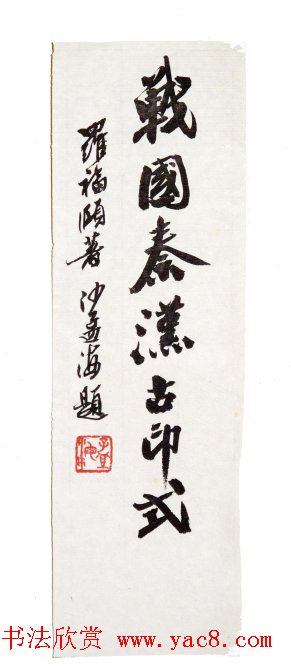 戰國秦漢古印式
羅福頤著 沙孟海題
书法欣赏 www.yac8.com